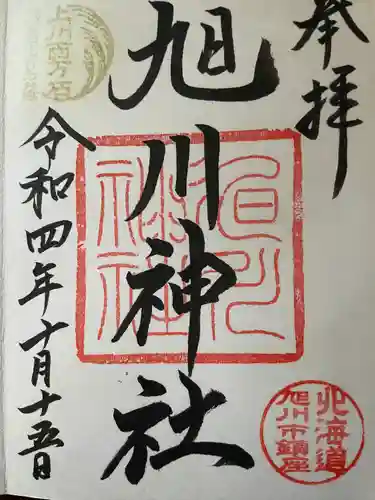 奉拝
旭川神社
令和四年十月十五日
旭川神社
北海道
旭川市鎮座